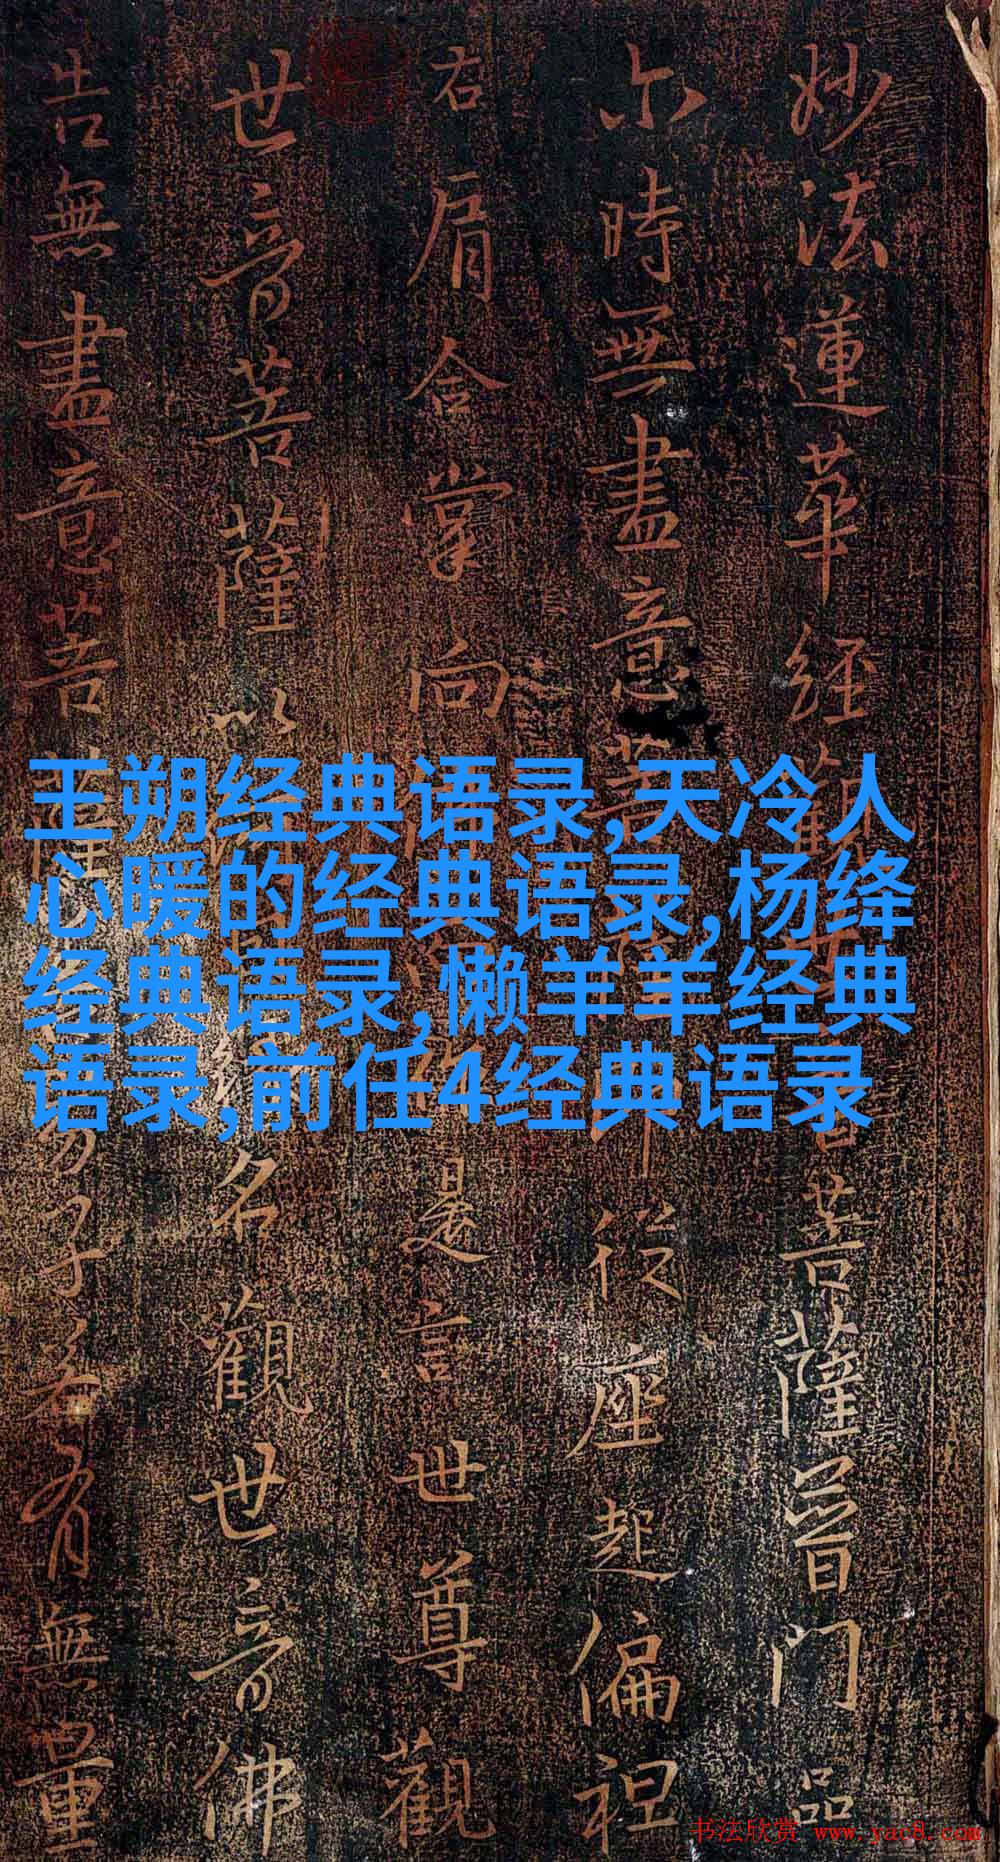 妙法蓮華經觀音菩薩普門品
尒時無盡意菩從座起偏袒
右肩合掌向是言世尊觀
世音菩薩以緣名觀世音佛
告無盡意菩薩男子若有無量
王朔经典语录,天冷人
心暖的经典语录,杨绛
经典语录,懒羊羊经典
语录,前任4经典语录
书法欣赏 www.yac8.com